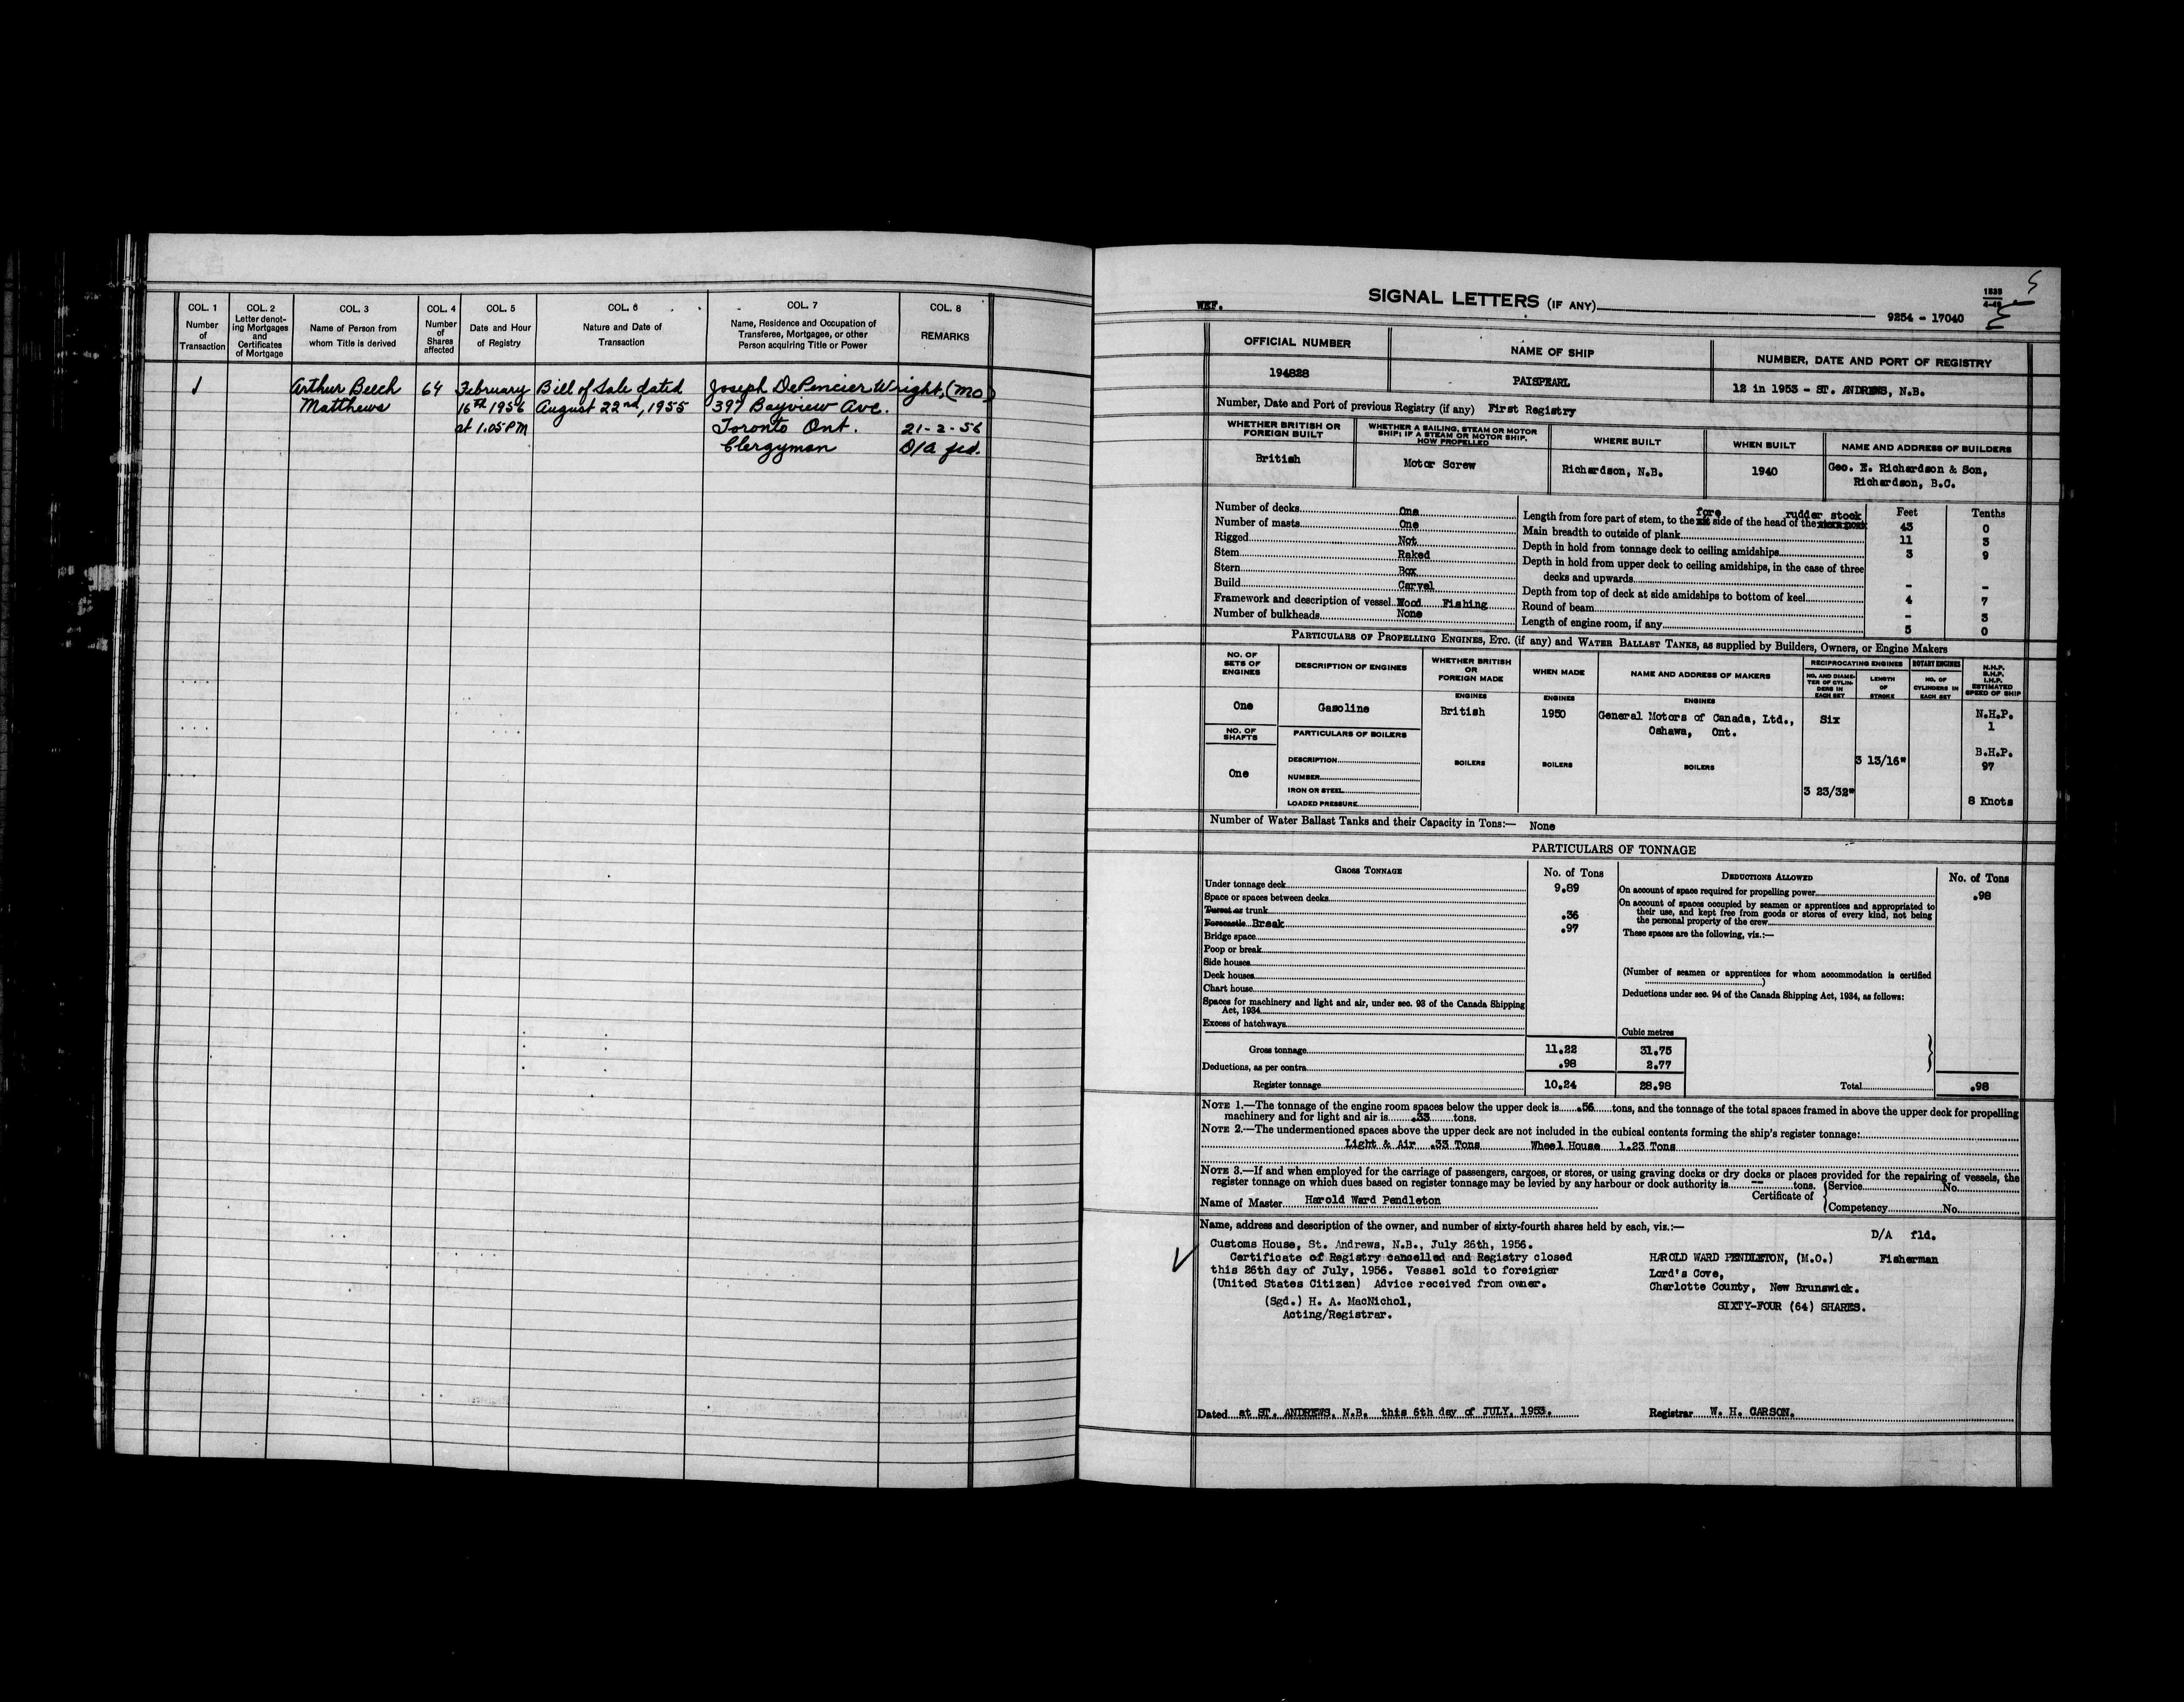 COL. 1
Number
of
Transaction
COL. 2
Letter denot-
ing Mortgages
and
Certificates
of Mortgage
COL. 3
Name of Person from
whom Title is derived
COL. 4
Number
of
Shares
affected
COL. 5
Date and Hour
of Registry
COL. 6
Nature and Date of
Transaction
COL. 7
Name, Residence and Occupation of
Transferee, Mortgagee, or other
Person acquiring Title or Power
COL. 8
REMARKS
1 Arthur Beech 64 February Bill of Sale dated Joseph DePencier Wright, (MO)
Matthews 16th 1956 August 22nd, 1955 397 Bayview Ave.
at 1.05 PM Toronto Ont. 21-2-56
Clergyman D/A fld.
WKF.
SIGNAL LETTERS (IF ANY)
1535
4-49
5
9254 - 17040
OFFICIAL NUMBER
194828
NAME OF SHIP
PAISPEARL
NUMBER, DATE AND PORT OF REGISTRY
12 in 1953 - ST. ANDREWS, N.B.
Number, Date and Port of previous Registry (if any) First Registry
WHETHER BRITISH OR
FOREIGN BUILT
British
WHETHER A SAILING, STEAM OR MOTOR
SHIP; IF A STEAM OR MOTOR SHIP,
HOW PROPELLED
Motor Screw
WHERE BUILT
Richardson, N.B.
WHEN BUILT
1940
NAME AND ADDRESS OF BUILDERS
Geo. E. Richardson & Son,
Richardson, B.C.
Number of decks One
Number of masts One
Rigged Not
Stem Raked
Stern Box
Build Carvel
Framework and description of vessel Wood Fishing
Number of bulkheads None
Feet Tenths
fore rudder stock
Length from fore part of stem, to the aft side of the head of the stern post 43 0
Main breadth to outside of plank 11 3
Depth in hold from tonnage deck to ceiling amidships 3 9
Depth in hold from upper deck to ceiling amidships, in the case of three
decks and upwards - -
Depth from top of deck at side amidships to bottom of keel 4 7
Round of beam - 3
Length of engine room, if any 5 0
PARTICULARS OF PROPELLING ENGINES, ETC. (if any) and WATER BALLAST TANKS, as supplied by Builders, Owners, or Engine Makers
NO. OF
SETS OF
ENGINES
One
NO. OF
SHAFTS
One
DESCRIPTION OF ENGINES
Gasoline
PARTICULARS OF BOILERS
DESCRIPTION
NUMBER
IRON OR STEEL
LOADED PRESSURE
WHETHER BRITISH
OR
FOREIGN MADE
ENGINES
British
BOILERS
WHEN MADE
ENGINES
1950
BOILERS
NAME AND ADDRESS OF MAKERS
ENGINES
General Motors of Canada, Ltd.,
Oshawa, Ont.
BOILERS
RECIPROCATING ENGINES
NO. AND DIAME-
TER OF CYLIN-
DERS IN
EACH SET
Six
3 23/32"
LENGTH
OF
STROKE
3 13/16"
ROTARY ENGINES
NO. OF
CYLINDERS IN
EACH SET
N.H.P.
B.H.P.
I.H.P.
ESTIMATED
SPEED OF SHIP
N.H.P.
1
B.H.P.
97
8 Knots
Number of Water Ballast Tanks and their Capacity in Tons:— None
PARTICULARS OF TONNAGE
GROSS TONNAGE No. of Tons
Under tonnage deck 9.89
Space or spaces between decks
Turret or trunk .36
Forecastle Break .97
Bridge space
Poop or break
Side houses
Deck houses
Chart house
Spaces for machinery and light and air, under sec. 93 of the Canada Shipping
Act, 1934
Excess of hatchways
Cubic metres
Gross tonnage 11.22 31.75
Deductions, as per contra .98 2.77
Register tonnage 10.24 28.98
DEDUCTIONS ALLOWED No. of Tons
On account of space required for propelling power .98
On account of spaces occupied by seamen or apprentices and appropriated to
their use, and kept free from goods or stores of every kind, not being
the personal property of the crew
These spaces are the following, viz.:—
(Number of seamen or apprentices for whom accommodation is certified
)
Deductions under sec. 94 of the Canada Shipping Act, 1934, as follows:
Total .98
NOTE 1.—The tonnage of the engine room spaces below the upper deck is .56 tons, and the tonnage of the total spaces framed in above the upper deck for propelling
machinery and for light and air is .33 tons.
NOTE 2.—The undermentioned spaces above the upper deck are not included in the cubical contents forming the ship's register tonnage:
Light & Air .33 Tons Wheel House 1.23 Tons
NOTE 3.—If and when employed for the carriage of passengers, cargoes, or stores, or using graving docks or dry docks or places provided for the repairing of vessels, the
register tonnage on which dues based on register tonnage may be levied by any harbour or dock authority is -- tons.
Name of Master Harold Ward Pendleton
Certificate of
Service No.
Competency No.
Name, address and description of the owner, and number of sixty-fourth shares held by each, viz.:—
Customs House, St. Andrews, N.B., July 26th, 1956.
Certificate of Registry cancelled and Registry closed
this 26th day of July, 1956. Vessel sold to foreigner
(United States Citizen) Advice received from owner.
(Sgd.) H. A. MacNichol,
Acting/Registrar.
D/A fld.
HAROLD WARD PENDLETON, (M.O.) Fisherman
Lord's Cove,
Charlotte County, New Brunswick.
SIXTY-FOUR (64) SHARES.
Dated at ST. ANDREWS, N.B. this 6th day of JULY, 1953.
Registrar W. H. CARSON.